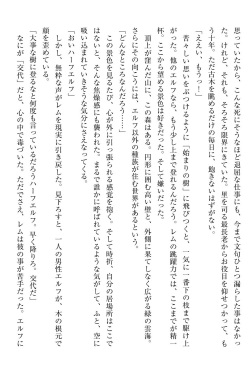 思っていたから、そんな死にそうなほど退屈な仕事も、今まで文句ひとつ漏らした事はなかっ
た。けれど、それも、そろそろ限界にきていた。里を司る最長老からお役目を仰せつかって、も
う十年。ただ古木を眺めるだけの毎日に、飽きないはずがない。
「ええい、もうっ！」
苦々しい思いをぶつけるように「始まりの樹」に飛びつくと、一気に一番下の枝まで駆け上
がった。他のエルフなら、もう少し上まで登れるんだろう。レムの跳躍力では、ここまでが精一
杯。ここから望める景色は好きだった。そして嫌いだった。
頭上が窪んだ山に、この森はある。円形に囲む高い壁と、外側に果てしなく広がる緑の雲海。
さらにその向こうには、エルフ以外の種族が住む世界があるという。
「どんなところなんだろう……」
この景色を見るたび、心が外に引っ張られる感覚を抱く。そして時折、自分の居場所はここで
はないと、そんな焦燥感にも襲われた。まるで誰かに呼ばれているような気がして、ふと、空に
吸い込まれていきそうな気分にさえなってくる。
「おいハーフエルフ」
しかし、無粋な声がレムを現実に引き戻した。見下ろすと、一人の男性エルフが、木の根元で
顔を歪めている。
「大事な樹に登るなと何度も言っているだろうハーフエルフ。早く降りろ。交代だ」
なにが「交代」だと、心の中で毒づいた。ただでさえ、レムは彼の事が苦手だった。エルフに